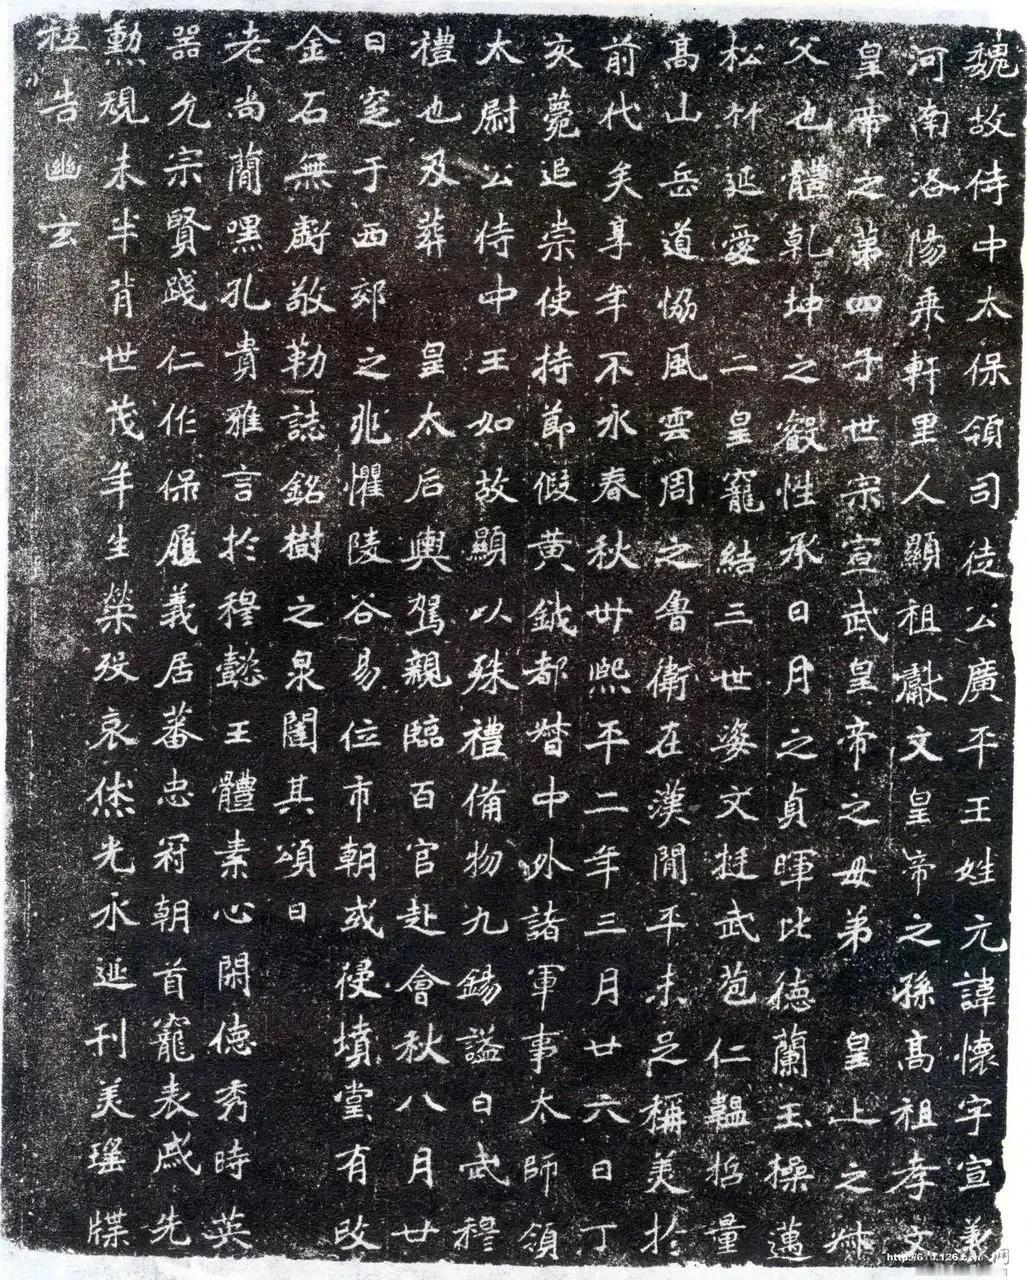 魏故侍中太保領司徒公廣平王姓元諱懷字宣義
河南洛陽乘軒里人顯祖獻文皇帝之孫高祖孝文
皇帝之第四子世宗宣武皇帝之母弟 皇上之叔
父也體乾坤之叡性承日月之貞暉比德蘭玉操邁
松竹延愛 二皇寵結三世姿文挺武苞仁韞哲量
高山岳道協風雲周之魯衛在漢閒平未足稱美於
前代矣享年不永春秋卅熙平二年三月廿六日丁
亥薨追崇使持節假黃鉞都督中外諸軍事太師領
太尉公侍中王如故顯以殊禮備物九錫謚曰武穆
禮也及葬 皇太后輿駕親臨百官赴會秋八月廿
日窆于西郊之兆懼陵谷易位市朝或侵墳堂有改
金石無虧敬勒誌銘樹之泉闥其頌曰
老尚簡嘿孔貴雅言於穆懿王體素心閑德秀時英
器允宗賢踐仁作保履義居蕃忠冠朝首寵表戚先
勳規未半背世茂年生榮歿哀休光永延刊美瑤牒
祗告幽玄
http://6 .126.c